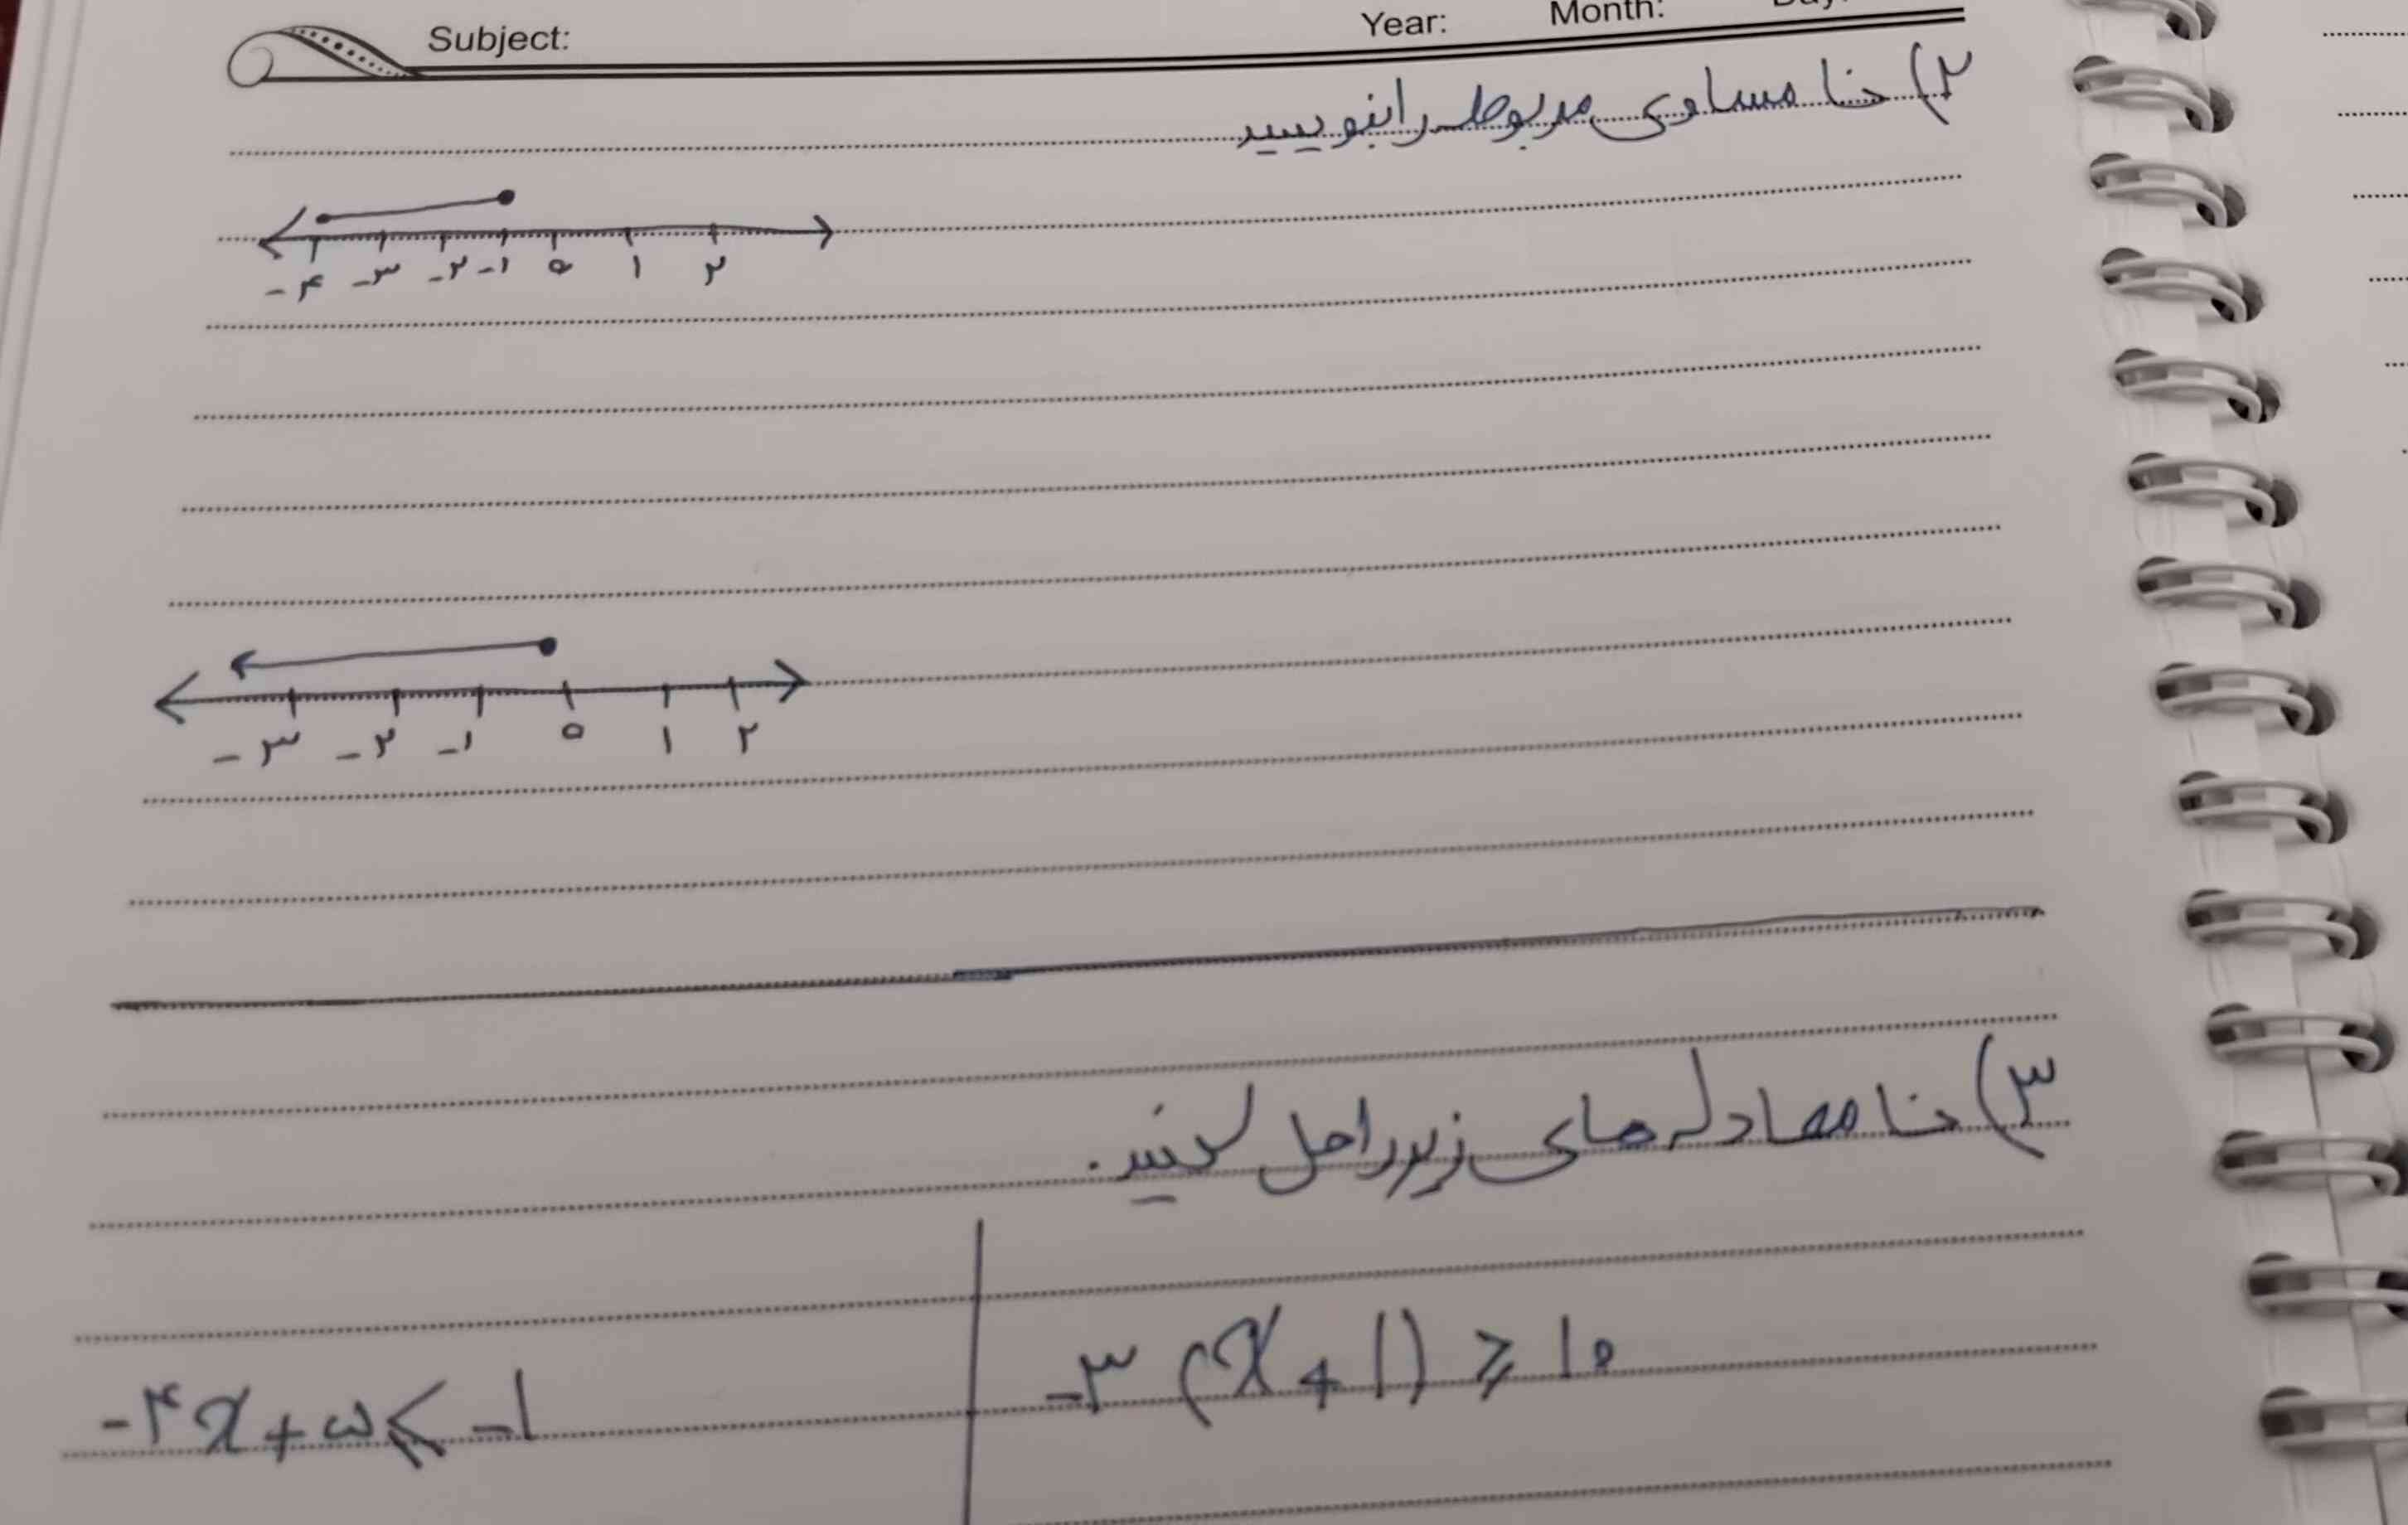 Subject: Year: Month: Day:
۲) نا مساوی مربوطه را بنویسید
-۴ -۳ -۲ -۱ ۰ ۱ ۲
-۳ -۲ -۱ ۰ ۱ ۲
۳) نا معادله های زیر را حل کنید.
-۳ (x + ۱) ⩾ ۱۰
-۴x + ۵ ⩽ -۱